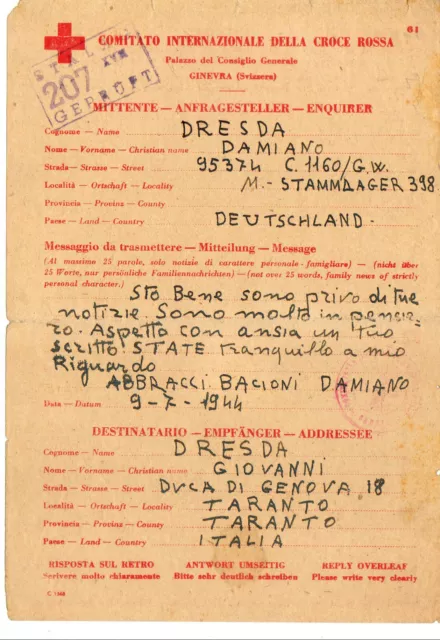 61
COMITATO INTERNAZIONALE DELLA CROCE ROSSA
Palazzo del Consiglio Generale
GINEVRA (Svizzera)
STALAG XVII
207
GEPRÜFT
MITTENTE — ANFRAGESTELLER — ENQUIRER
Cognome — Name DRESDA
Nome — Vorname — Christian name DAMIANO
Strada — Strasse — Street 95374 C. 1160/G.W.
Località — Ortschaft — Locality M.- STAMMLAGER 398
Provincia — Provinz — County
Paese — Land — Country DEUTSCHLAND.
Messaggio da trasmettere — Mitteilung — Message
(Al massimo 25 parole, solo notizie di carattere personale - famigliare) — (nicht über
25 Worte, nur persönliche Familiennachrichten) — (not over 25 words, family news of strictly
personal character.)
Sto Bene sono privo di tue
notizie. Sono molto in pensie-
ro. Aspetto con ansia un tuo
scritto! STATE tranquillo a mio
Riguardo
ABBRACCI BACIONI DAMIANO
Data — Datum 9-7-1944
DESTINATARIO — EMPFÄNGER — ADDRESSEE
Cognome — Name DRESDA
Nome — Vorname — Christian name GIOVANNI
Strada — Strasse — Street DUCA DI GENOVA 18
Località — Ortschaft — Locality TARANTO
Provincia — Provinz — County TARANTO
Paese — Land — Country ITALIA
RISPOSTA SUL RETRO ANTWORT UMSEITIG REPLY OVERLEAF
Scrivere molto chiaramente Bitte sehr deutlich schreiben Please write very clearly